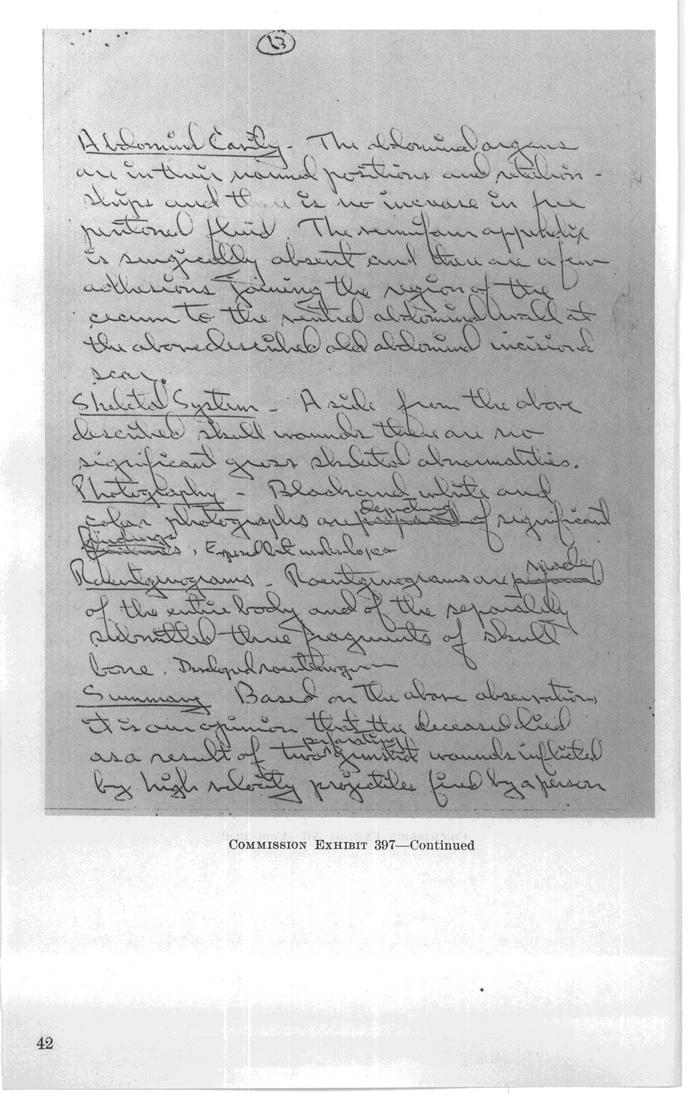 13
Abdominal Cavity - The abdominal organs
are in their normal positions and relation-
ships and there is no increase in free
peritoneal fluid. The vermiform appendix
is surgically absent and there are a few
adhesions joining the region of the
cecum to the ventral abdominal wall at
the above described old abdominal incisional
scar.
Skeletal System - Aside from the above
described skull wounds there are no
significant gross skeletal abnormalities.
Photography - Black and white and
depicting
color photographs are prepared of significant
findings, Exposed but undeveloped
made
Roentgenograms - Roentgenograms are prepared
of the entire body and of the separately
submitted three fragments of skull
bone. Developed roentgenogram
Summary Based on the above observations
it is our opinion that the deceased died
perforating
as a result of two gunshot wounds inflicted
by high velocity projectiles fired by a person
COMMISSION EXHIBIT 397—Continued
42